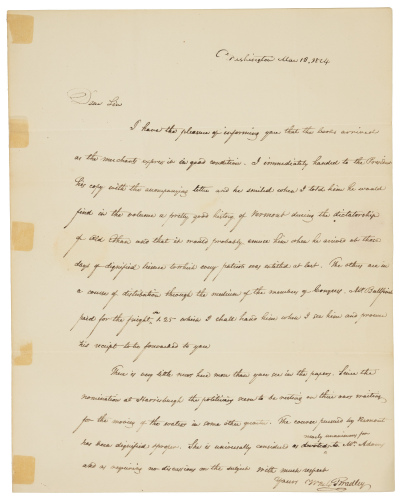 Washington Mar 18, 1824
Dear Sir
I have the pleasure of informing you that the books arrived
as the merchants express it in good condition. I immediately handed to the President
his copy with the accompanying letter and he smiled when I told him he would
find in the volume a pretty good history of Vermont during the dictatorship
of Old Ethan and that it would probably amuse him when he arrived at those
days of dignified leisure to which every patriot was entitled at last. The others are in
a course of distribution through the medium of the members of Congress. Mr
paid for the freight 1.25 which I shall hand him when I see him and procure
his receipt to be forwarded to you
There is very little news here more than you see in the papers. Since the
nomination at Harrisburgh the politicians seem to be resting on their oars waiting
for the moving of the waters in some other quarter. The course pursued by Vermont
nearly unanimous for
has been dignified . She is universally considered as devoted to Mr. Adams
and as requiring no discussions on the subject with much respect
yours Wm C Bradley